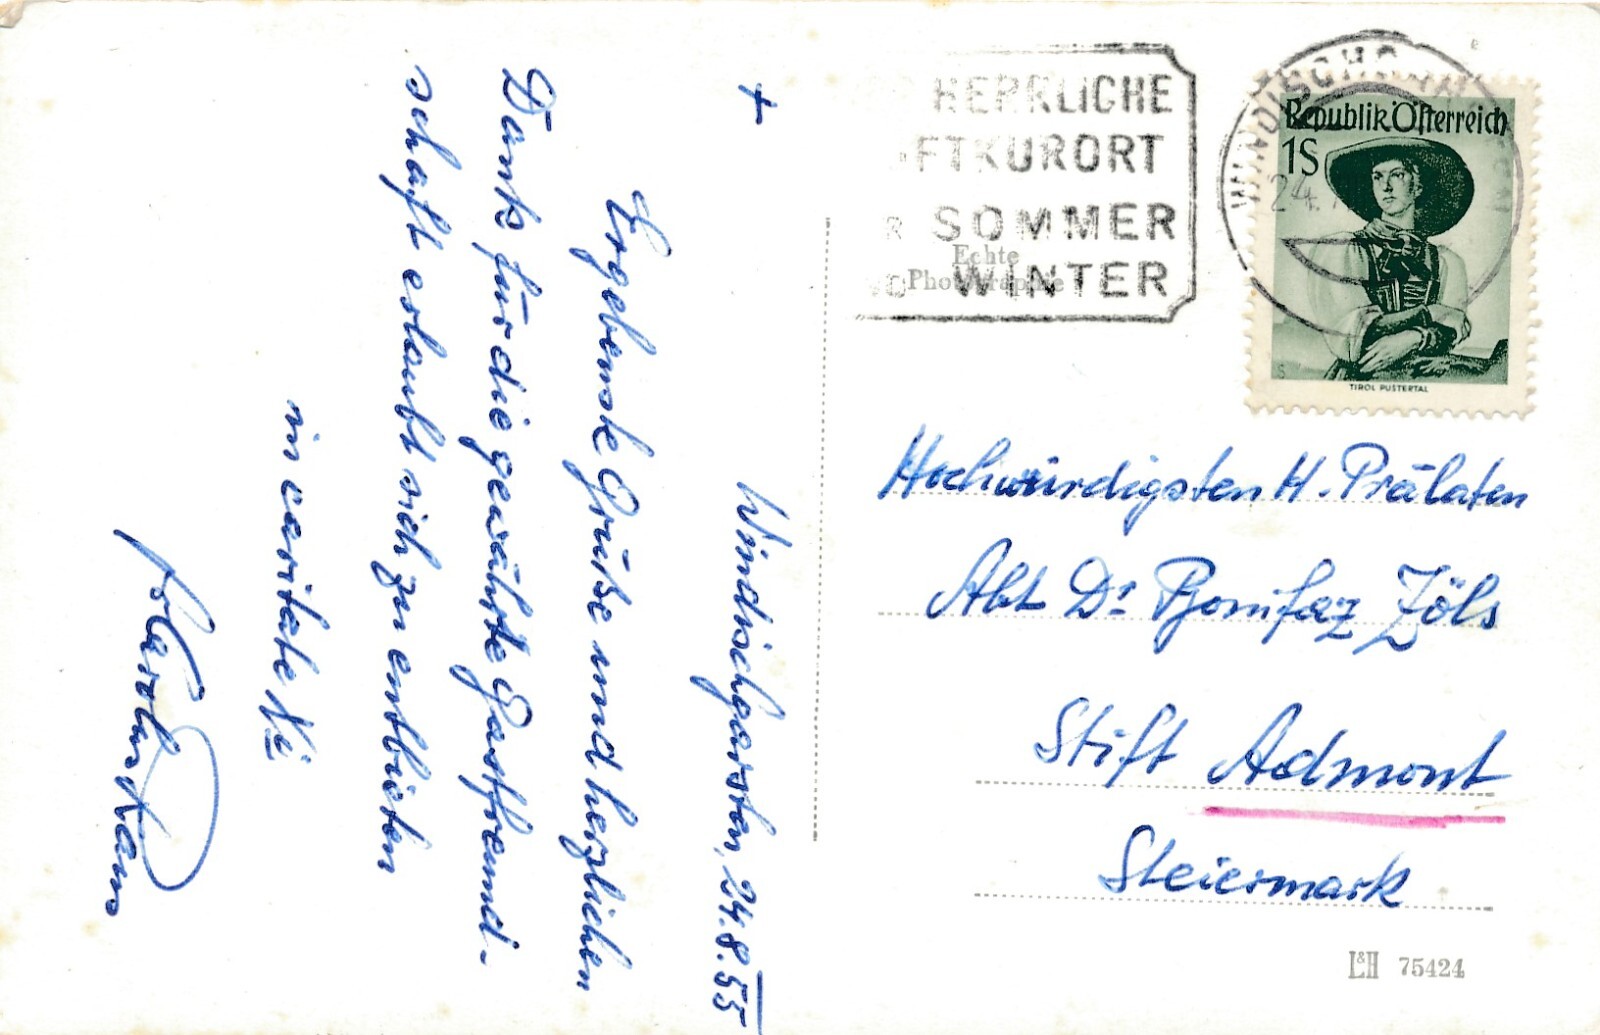 +
Windischgarsten, 24.8.55
Ergebenste Grüße und herzlichen
Dank für die gewährte Gastfreund-
schaft erlaubt sich zu entbieten
in caritate
HERRLICHE
LUFTKURORT
SOMMER
WINTER
WINDISCHGARSTEN
24.
Republik Österreich
1S
TIROL PUSTERTAL
Echte
Photographie
Hochwürdigsten H. Prälaten
Abt Dr Bonifaz Zöls
Stift Admont
Steiermark
L&H 75424